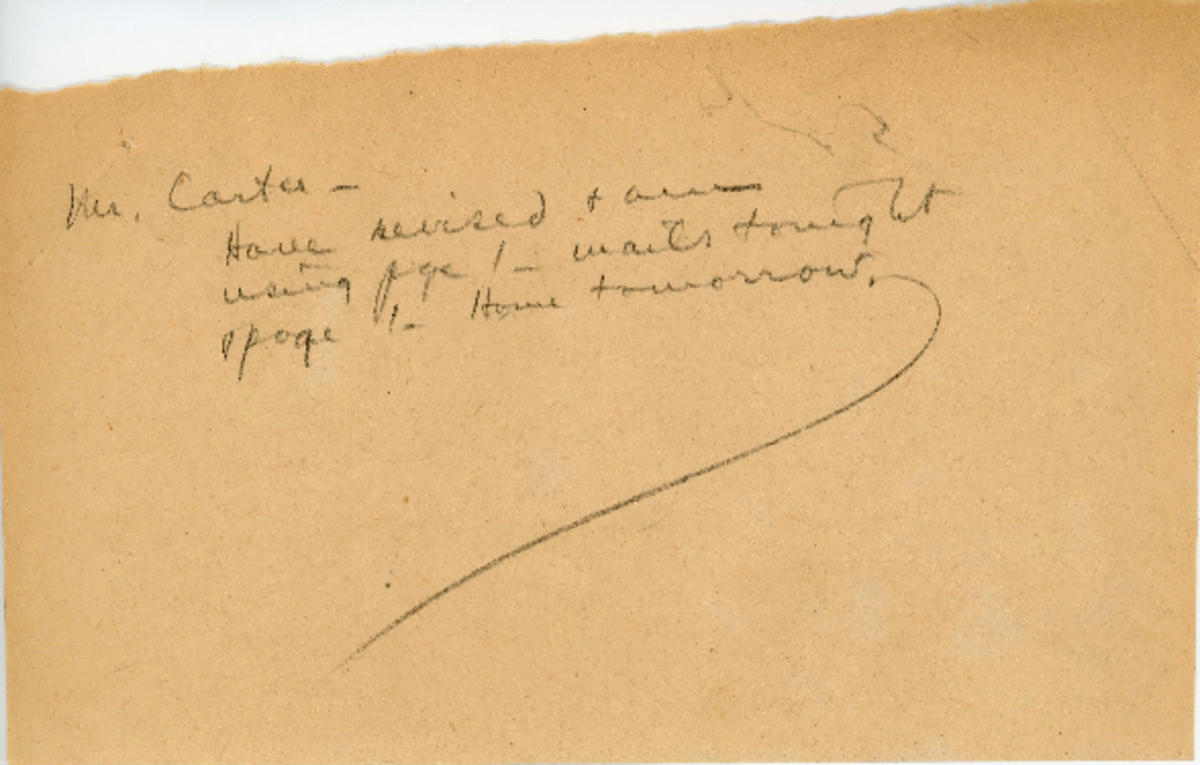 Mr. Carter –
Have revised + am
using pge 1 – mails tonight
page 1 – Home tomorrow.